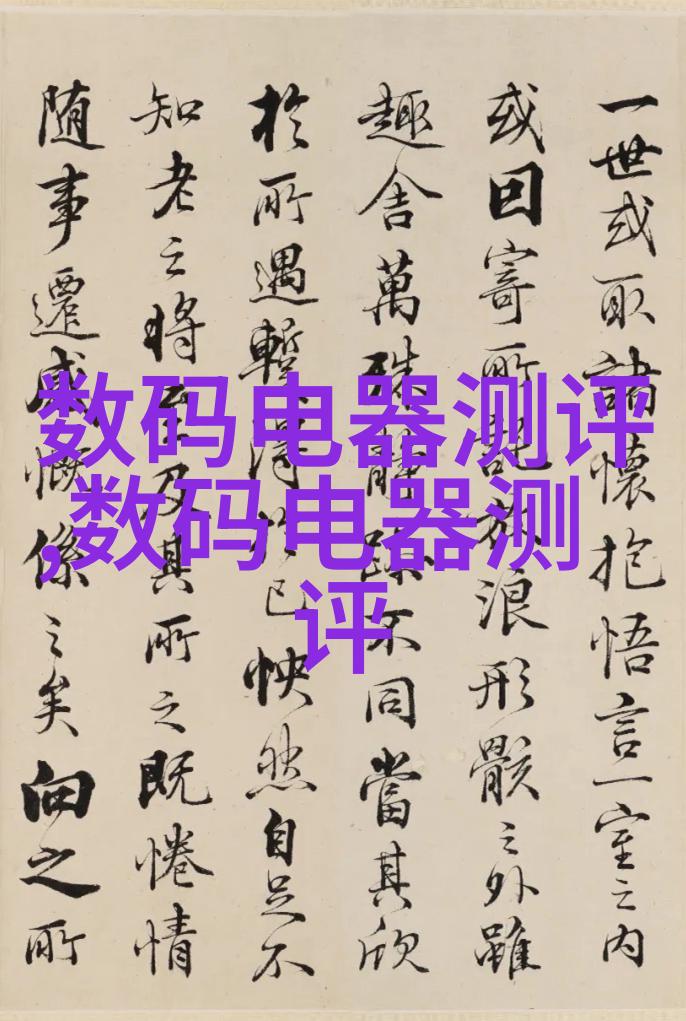 一世或取諸懷抱悟言一室之內
或因寄所託放浪形骸之外雖
趣舍萬殊靜躁不同當其欣
於所遇暫得於己怏然自足不
知老之將至及其所之既惓情
随事遷感慨係之矣向之所
数码电器测评
,数码电器测
评